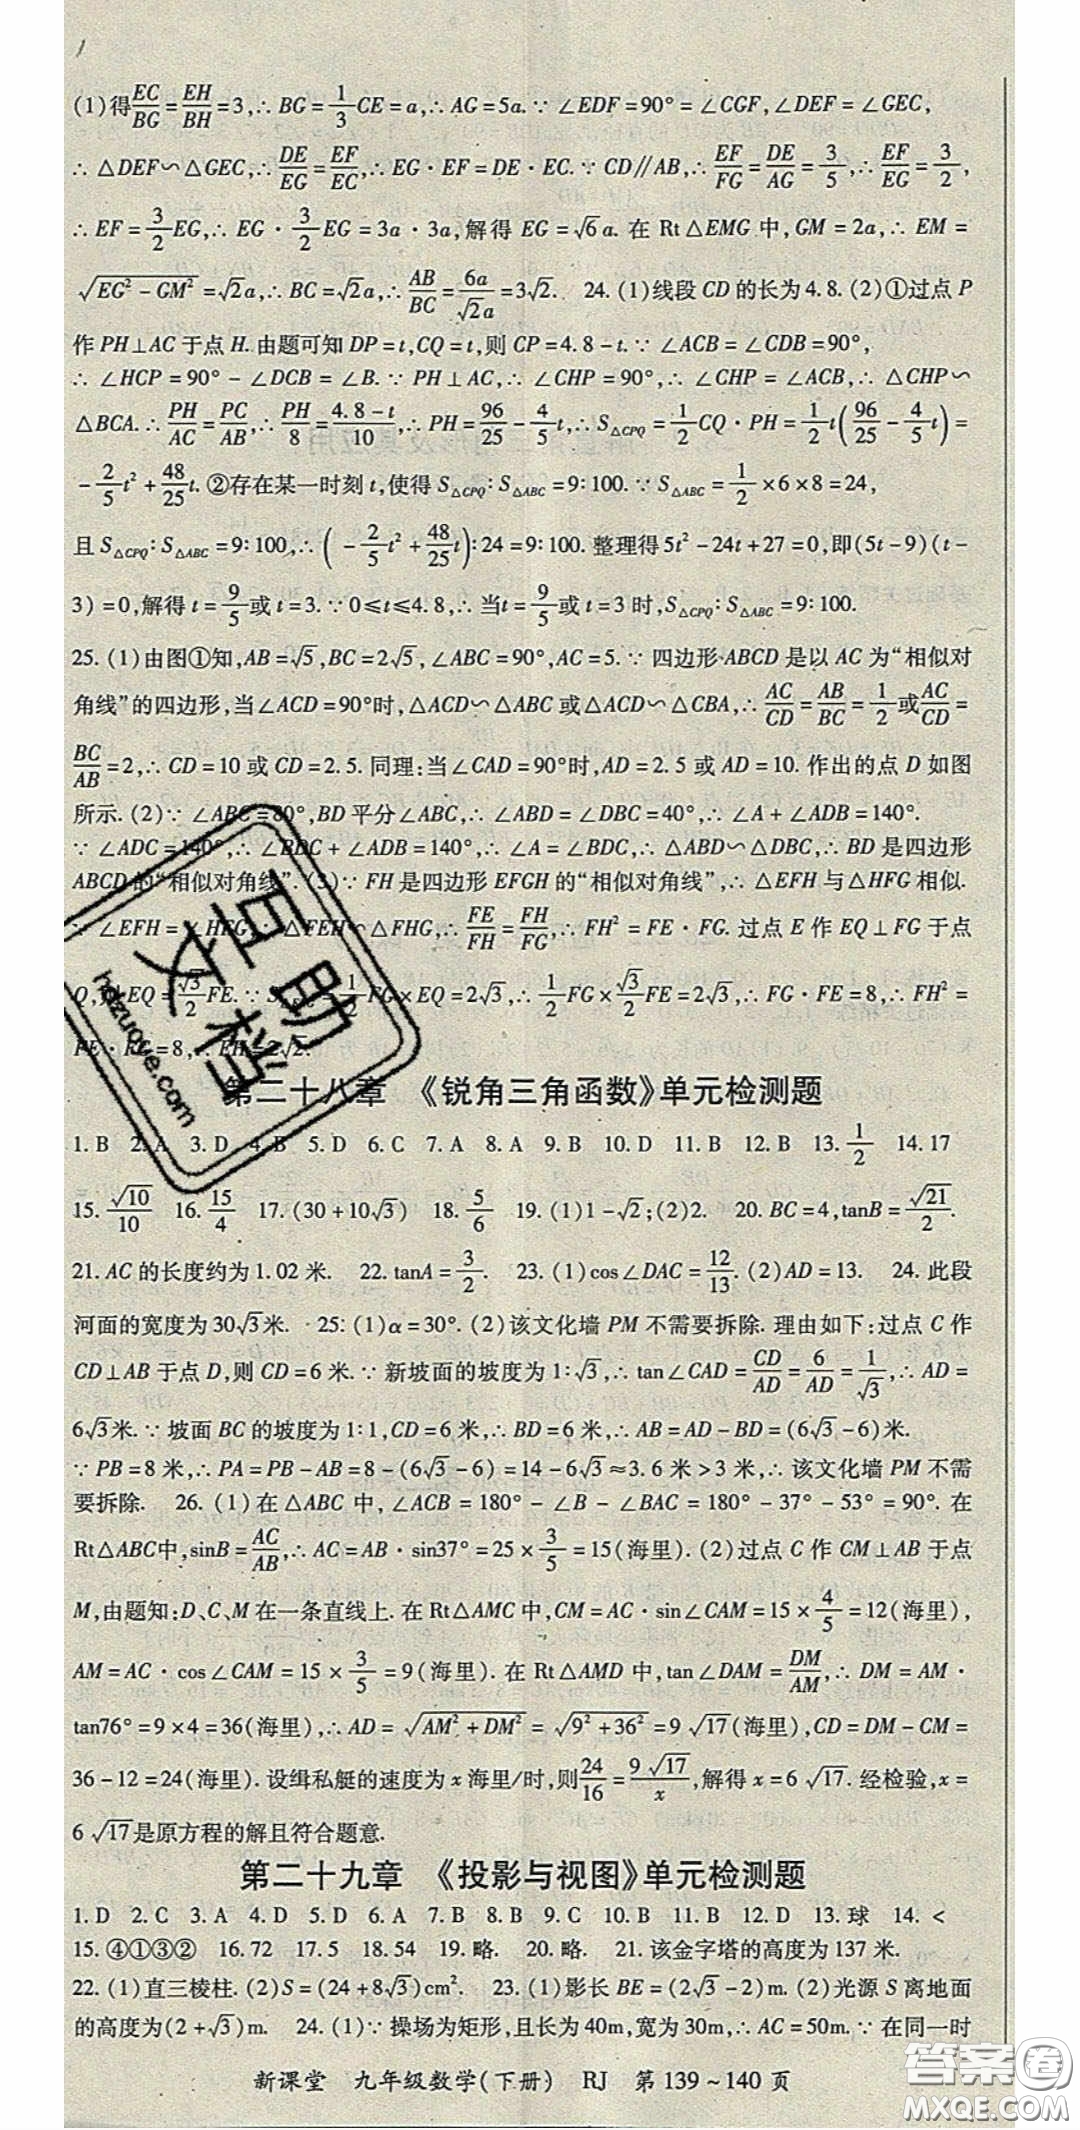 (1)得EC/BG=EH/BH=3,∴BG=1/3CE=a,∴AG=5a.∵∠EDF=90°=∠CGF,∠DEF=∠GEC,
∴△DEF∽△GEC,∴DE/EG=EF/EC,∴EG·EF=DE·EC.∵CD∥AB,∴EF/FG=DE/AG=3/5,∴EF/EG=3/2,
∴EF=3/2EG,∴EG·3/2EG=3a·3a,解得EG=√6a.在Rt△EMG中,GM=2a,∴EM=
√(EG²-GM²)=√2a,∴BC=√2a,∴AB/BC=6a/√2a=3√2. 24.(1)线段CD的长为4.8.(2)①过点P
作PH⊥AC于点H.由题可知DP=t,CQ=t,则CP=4.8-t.∵∠ACB=∠CDB=90°,
∴∠HCP=90°-∠DCB=∠B.∵PH⊥AC,∴∠CHP=90°,∴∠CHP=∠ACB,∴△CHP∽
△BCA.∴PH/AC=PC/AB,∴PH/8=(4.8-t)/10,∴PH=96/25-4/5t,∴S△CPQ=1/2CQ·PH=1/2t(96/25-4/5t)=
-2/5t²+48/25t.②存在某一时刻t,使得S△CPQ:S△ABC=9:100.∵S△ABC=1/2×6×8=24,
且S△CPQ:S△ABC=9:100,∴(-2/5t²+48/25t):24=9:100.整理得5t²-24t+27=0,即(5t-9)(t-
3)=0,解得t=9/5或t=3.∵0≤t≤4.8,∴当t=9/5或t=3时,S△CPQ:S△ABC=9:100.
25.(1)由图①知,AB=√5,BC=2√5,∠ABC=90°,AC=5.∵四边形ABCD是以AC为“相似对
角线”的四边形,当∠ACD=90°时,△ACD∽△ABC或△ACD∽△CBA,∴AC/CD=AB/BC=1/2或AC/CD=
BC/AB=2,∴CD=10或CD=2.5.同理:当∠CAD=90°时,AD=2.5或AD=10.作出的点D如图
所示.(2)∵∠ABC=80°,BD平分∠ABC,∴∠ABD=∠DBC=40°,∴∠A+∠ADB=140°.
∵∠ADC=140°,∴∠BDC+∠ADB=140°,∴∠A=∠BDC,∴△ABD∽△DBC,∴BD是四边形
ABCD的“相似对角线”.(3)∵FH是四边形EFGH的“相似对角线”,∴△EFH与△HFG相似.
∵∠EFH=∠HFG,∴△FEH∽△FHG,∴FE/FH=FH/FG,∴FH²=FE·FG.过点E作EQ⊥FG于点
Q,EQ=√3/2FE.∵1/2FG×EQ=2√3,∴1/2FG×√3/2FE=2√3,∴FG·FE=8,∴FH²=
FE·FG=8,∴FH=2√2.
第二十八章 《锐角三角函数》单元检测题
1.B 2.A 3.D 4.B 5.D 6.C 7.A 8.A 9.B 10.D 11.B 12.B 13.1/2 14.17
15.√10/10 16.15/4 17.(30+10√3) 18.5/6 19.(1)1-√2;(2)2. 20.BC=4,tanB=√21/2.
21.AC的长度约为1.02米. 22.tanA=3/2. 23.(1)cos∠DAC=12/13.(2)AD=13. 24.此段
河面的宽度为30√3米. 25:(1)α=30°.(2)该文化墙PM不需要拆除.理由如下:过点C作
CD⊥AB于点D,则CD=6米.∵新坡面的坡度为1:√3,∴tan∠CAD=CD/AD=6/AD=1/√3,∴AD=
6√3米.∵坡面BC的坡度为1:1,CD=6米,∴BD=6米,∴AB=AD-BD=(6√3-6)米.
∵PB=8米,∴PA=PB-AB=8-(6√3-6)=14-6√3≈3.6米>3米,∴该文化墙PM不需
要拆除. 26.(1)在△ABC中,∠ACB=180°-∠B-∠BAC=180°-37°-53°=90°.在
Rt△ABC中,sinB=AC/AB,∴AC=AB·sin37°=25×3/5=15(海里).(2)过点C作CM⊥AB于点
M,由题知:D、C、M在一条直线上.在Rt△AMC中,CM=AC·sin∠CAM=15×4/5=12(海里),
AM=AC·cos∠CAM=15×3/5=9(海里).在Rt△AMD中,tan∠DAM=DM/AM,∴DM=AM·
tan76°=9×4=36(海里),∴AD=√(AM²+DM²)=√(9²+36²)=9√17(海里),CD=DM-CM=
36-12=24(海里).设缉私艇的速度为x海里/时,则24/16=9√17/x,解得x=6√17.经检验,x=
6√17是原方程的解且符合题意.
第二十九章 《投影与视图》单元检测题
1.D 2.C 3.A 4.D 5.D 6.A 7.B 8.B 9.C 10.B 11.B 12.D 13.球 14.<
15.④①③② 16.72 17.5 18.54 19.略. 20.略. 21.该金字塔的高度为137米.
22.(1)直三棱柱.(2)S=(24+8√3)cm². 23.(1)影长BE=(2√3-2)m.(2)光源S离地面
的高度为(2+√3)m. 24.(1)∵操场为矩形,且长为40m,宽为30m,∴AC=50m.∵在同一时
新课堂 九年级数学(下册) RJ 第139~140页
互助文档
hdzuoye.com
答案圈
MXQE.COM